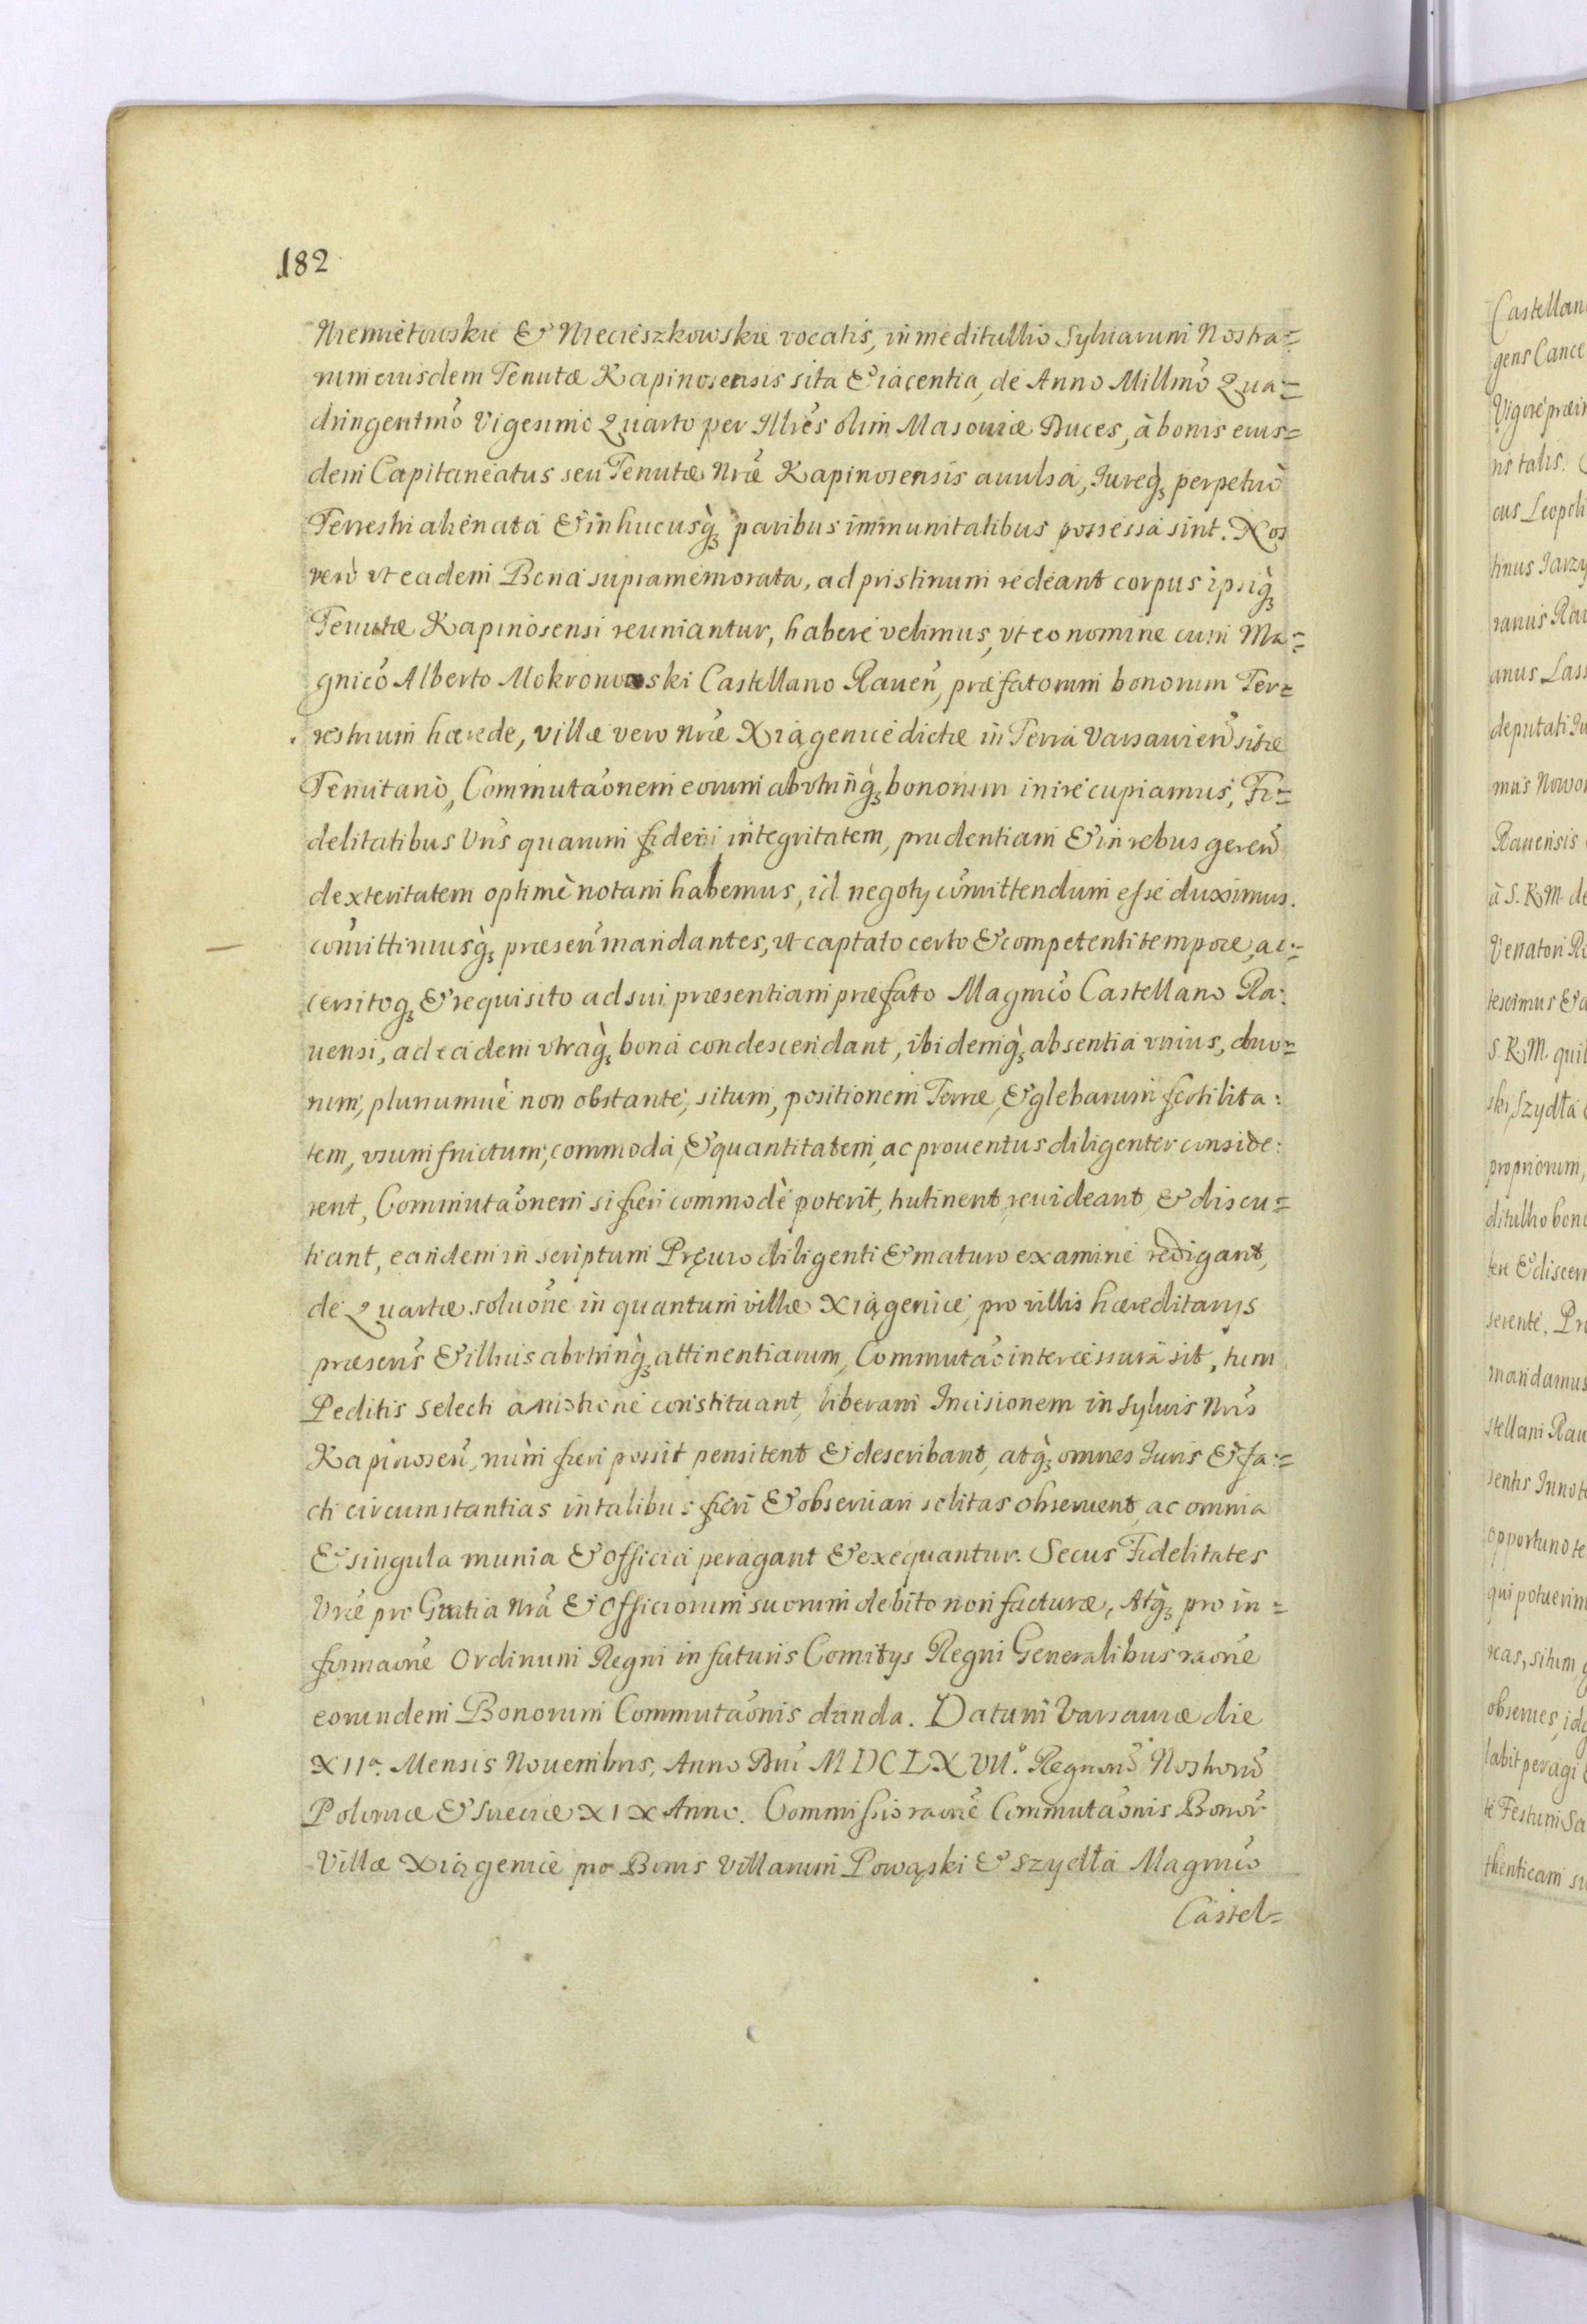 182
Niemietowskie & Niecieszkowskie vocatis, in meditullio Sylvarum Nostra=
rum eiusdem Tenutæ Kapinosensis sita & iacentia, de Anno Millmo Qua=
dringentmo Vigesimo Quarto per Illres olim Masoviæ Duces, à bonis eius=
dem Capitaneatus seu Tenutæ Nræ Kapinosensis avulsa, Iureq; perpetuò
Terrestri alienata & in hucusq; paribus immunitatibus possessa sint. Nos
verò vt eadem Bona supramemorata, ad pristinum redeant corpus ipsiq;
Tenutæ Kapinosensi reuniantur, habere velimus, vt eo nomine cum Ma=
gnico Alberto Mokronowski Castellano Raven, præfatorum bonorum Ter=
restrium hærede, villæ vero Nræ Xiągenice dictæ in Terra Varsavien sitæ
Tenutario, Commutaonem eorum abvtrinq; bonorum inire cupiamus, Fi=
delitatibus Vris quarum fidem integritatem, prudentiam & in rebus geren
dexteritatem optimè notam habemus, id negoty comittendum esse duximus.
comittimusq; præsen mandantes, vt captato certo & competenti tempore, ac=
cersitoq; & requisito ad sui præsentiam præfato Magnico Castellano Ra:
uensi, ad eadem vtraq; bona condescendant, ibidemq; absentia vnius, duo=
rum, pluriumuè non obstante, situm, positionem Terræ, & glebarum fertilita:
tem, vsumfructum, commoda, & quantitatem, ac prouentus diligenter conside:
rent, Commutaonem si fieri commodè poterit, trutinent, revideant & discu=
tiant, eandem in scriptum Prævio diligenti & maturo examine redigant,
de Quartæ soluone in quantum villæ Xiągenice, pro villis hæreditarys
præsens & illius abvtrinq; attinentiarum, Commutao intercessura sit, tum
Peditis selecti constituant, liberam Incisionem in Sylvis Nris
Kapinosen, num fieri possit pensitent & describant, atq; omnes Iuris & fa:=
cti circumstantias in talibus fieri & obseruari solitas obseruent, ac omnia
& singula munia & Officia peragant & exequantur. Secus Fidelitates
Vræ pro Gratia Nra & Officiorum suorum debito non facturæ, Atq; pro in=
formaone Ordinum Regni in futuris Comitys Regni Generalibus raone
eorundem Bonorum Commutaonis danda. Datum Varsauiæ die
XIIa. Mensis Nouembris, Anno Dni MDCLXVIIo. Regnorum Nostrorum
Poloniæ & Sueciæ XIX Anno. Commissio raone Commutaonis Bonor
Villæ Xiągenice pro Bonis Villarum Powąski & Szydła Magnico
Castel=